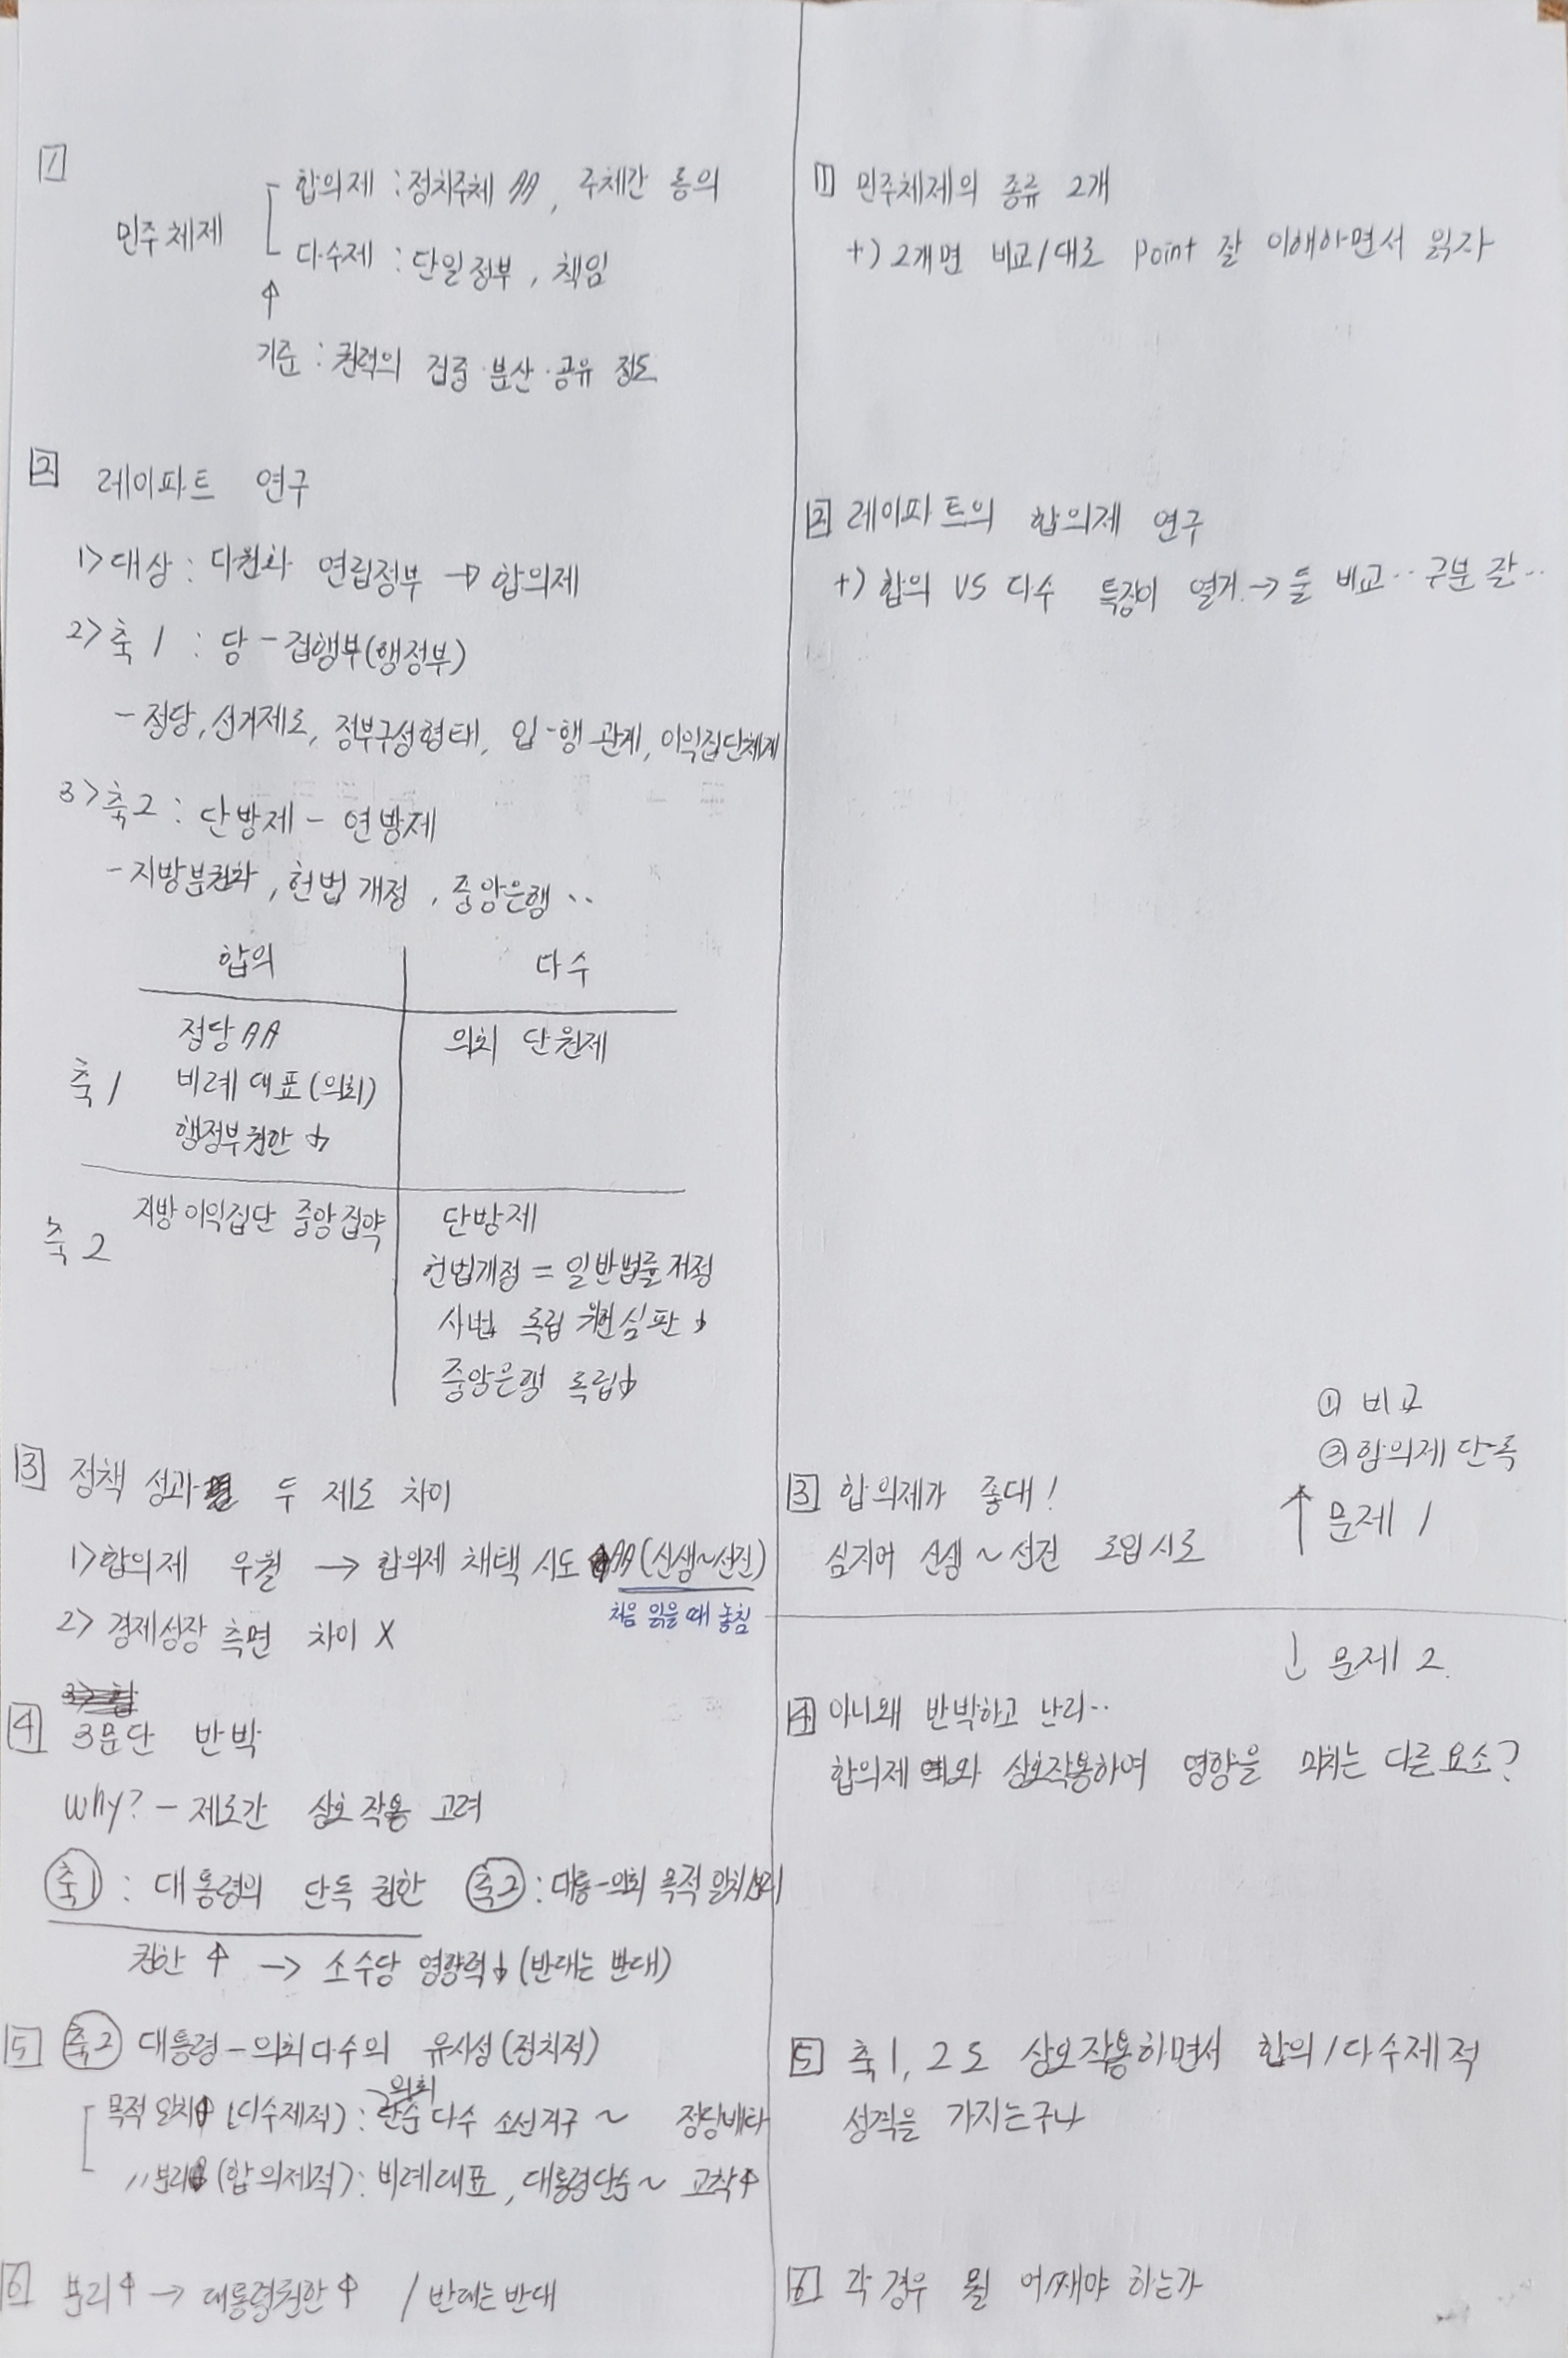 1
합의제 : 정치주체 ↑↑, 주체간 동의
민주 체제
다수제 : 단일정부, 책임
↑
기준 : 권력의 집중·분산·공유 정도
2 레이파트 연구
1> 대상 : 다원화 연립정부 → 합의제
2> 축 1 : 당 - 집행부(행정부)
- 정당, 선거제도, 정부구성형태, 입-행 관계, 이익집단체계
3> 축2 : 단방제 - 연방제
- 지방분권화, 헌법 개정, 중앙은행 ..
합의 다수
정당 ↑↑ 의회 단원제
축 1 비례대표(의회)
행정부권한 ↓
축 2 지방이익집단 중앙집약 단방제
헌법개정 = 일반법률저정
사법 독립 위헌심판 ↓
중앙은행 독립↓
3 정책 성과 두 제도 차이
1> 합의제 우월 → 합의제 채택 시도 ↑↑ (신생~선진)
처음 읽을 때 놓침
2> 경제성장 측면 차이 X
4 3문단 반박
Why? - 제도간 상호작용 고려
축1 : 대통령의 단독 권한 축2 : 대통-의회 목적 일치/분리
권한 ↑ → 소수당 영향력↓ (반대는 반대)
5 축2 대통령 - 의회다수의 유사성(정치적)
의회
목적 일치 (다수제적) : 단순 다수 소선거구 ~ 정당배타
〃 분리 (합의제적) : 비례대표, 대통령단순 ~ 교착↑
6 분리↑ → 대통령권한↑ / 반대는 반대
1 민주체제의 종류 2개
+) 2개면 비교/대조 Point 잘 이해하면서 읽자
2 레이파트의 합의제 연구
+) 합의 VS 다수 특징이 열거 → 둘 비교.. 구분 잘..
① 비교
② 합의제 단독
↑ 문제 1
3 합의제가 좋대!
심지어 신생 ~ 선진 도입시도
↓ 문제 2.
4 아니왜 반박하고 난리..
합의제와 상호작용하여 영향을 미치는 다른 요소?
5 축1, 2도 상호작용하면서 합의/다수제적
성격을 가지는구나
6 각 경우 뭘 어째야 하는가